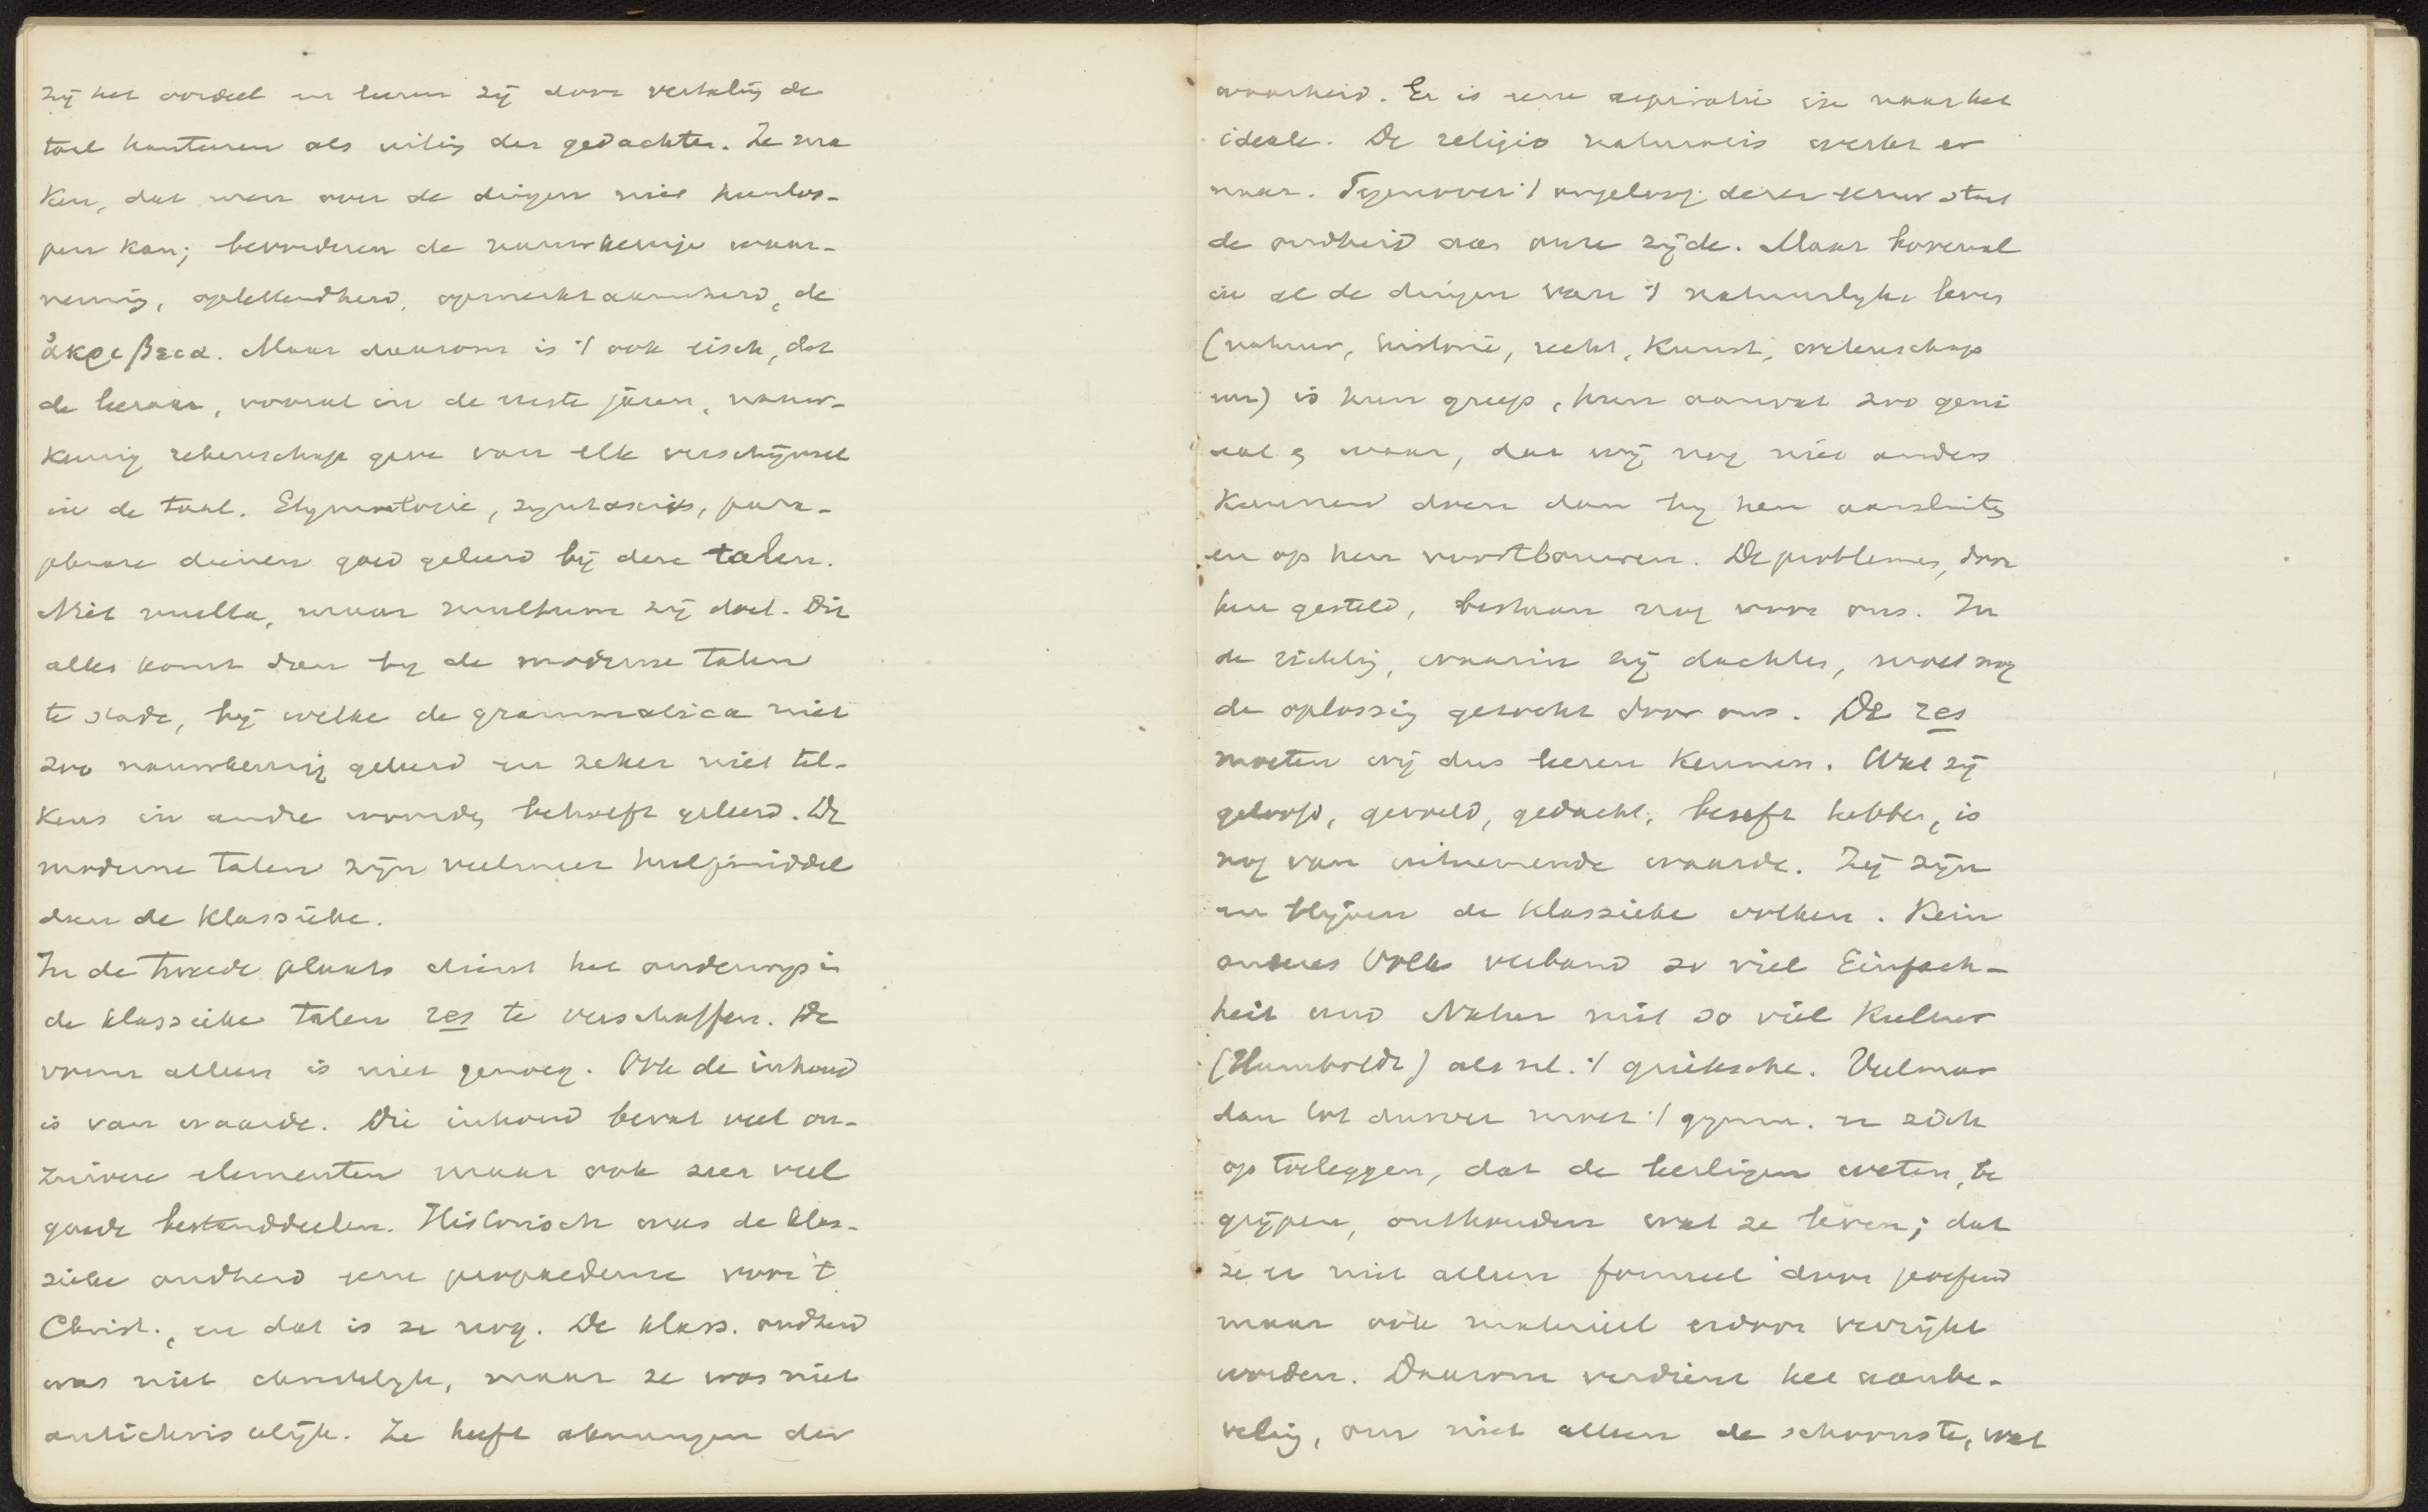 zij het oordeel en leeren zij door vertaling de
taal hanteeren als uiting der gedachten. Ze ma
ken, dat men over de dingen niet heenloo-
pen kan; bevorderen de nauwkeurige waar-
neming, oplettendheid, opmerkzaamheid, de
ἀκρίβεια. Maar daarom is 't ook eisch, dat
de leeraar, vooral in de eerste jaren, nauw-
keurig rekenschap geve van elk verschijnsel
in de taal. Etymologie, syntaxis, para-
phrase dienen goed geleerd bij deze talen.
Niet multa, maar multum zij doel. Dit
alles komt dan bij de moderne talen
te stade, bij welke de grammatica niet
zoo nauwkeurig geleerd en zeker niet tel-
kens in andre woorden behoeft geleerd. De
moderne talen zijn veelmeer hulpmiddel
dan de klassieke.
In de tweede plaats dient het onderwijs in
de klassieke talen res te verschaffen. De
vorm alleen is niet genoeg. Ook de inhoud
is van waarde. Die inhoud bevat veel on-
zuivere elementen maar ook zeer veel
goede bestanddeelen. Historisch was de klas-
sieke oudheid eene propaedeuse voor 't
Christ., en dat is ze nog. De klass. oudheid
was niet christelijk, maar ze was niet
antichristelijk. Ze heeft ahnungen der
waarheid. Er is eene aspiratie in naar het
ideale. De religio naturalis werkt er
naar. Tegenover 't ongeloof dezer eeuw staat
de oudheid aan onze zijde. Maar bovenal
in al de dingen van 't natuurlijke leven
(natuur, historie, recht, kunst, wetenschap
enz) is hun greep, hun aanvat zoo geni
aal en waar, dat wij nog niet anders
kunnen doen dan bij hen aansluiten
en op hen voortbouwen. De problemen, door
hen gesteld, bestaan nog voor ons. In
de richting, waarin zij dachten, moet nog
de oplossing gezocht door ons. De res
moeten wij dus leeren kennen. Wat zij
geloofd, gevoeld, gedacht, beseft hebben, is
nog van uitnemende waarde. Zij zijn
en blijven de klassieke volken. Kein
anderes Volk verband so viel Einfach-
heit und Natur mit so viel Kultur
(Humboldt) als nl. 't grieksche. Veelmeer
dan tot dusver moet 't gymn. er zich
op toeleggen, dat de leerlingen weten, be
grijpen, onthouden wat ze lezen; dat
ze er niet alleen formeel door geoefend
maar ook materieel erdoor verrijkt
worden. Daarom verdient het aanbe-
veling, om niet alleen de schoonste, wat